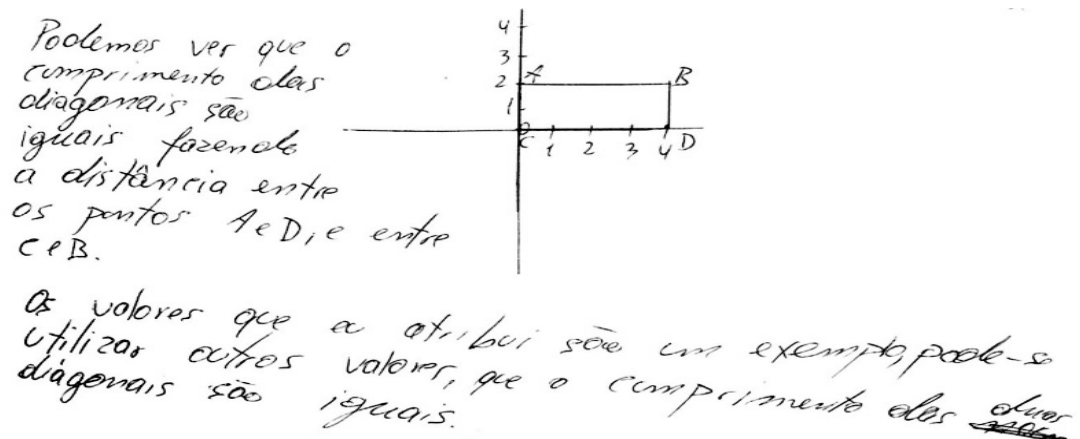 Podemos ver que o
cumprimento das
diagonais são
iguais fazendo
a distância entre
os pontos A e D, e entre
C e B.
4
3
2 A B
1
0
C 1 2 3 4 D
Os valores que eu atribui são um exemplo, pode-se
utilizar outros valores, que o cumprimento das duas
diagonais são iguais.